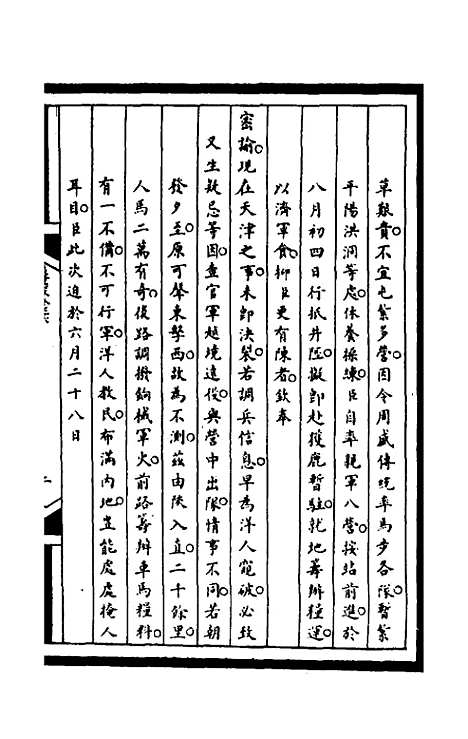 草艱貴。不宜屯紮多營。因令周盛傳統率馬步各隊。暫紮
平陽洪洞等處。休養操練。臣自率親軍八營。按站前進。於
八月初四日行抵井陘。擬即赴獲鹿暫駐。就地籌辦糧運。
以濟軍食。抑臣更有陳者。欽奉
密諭。現在天津之事。未即決裂。若調兵信息。早為洋人窺破。必致
又生疑忌等因。查官軍越境遠役。與營中出隊。情事不同。若朝
發夕至。原可聲東擊西。故為不測。茲由陝入直。二十餘里。
人馬二萬有奇。後路調撥餉械軍火。前路籌辦車馬糧料。
有一不備。不可行軍。洋人教民。布滿內地。豈能處處掩人
耳目。臣此次迫於六月二十八日